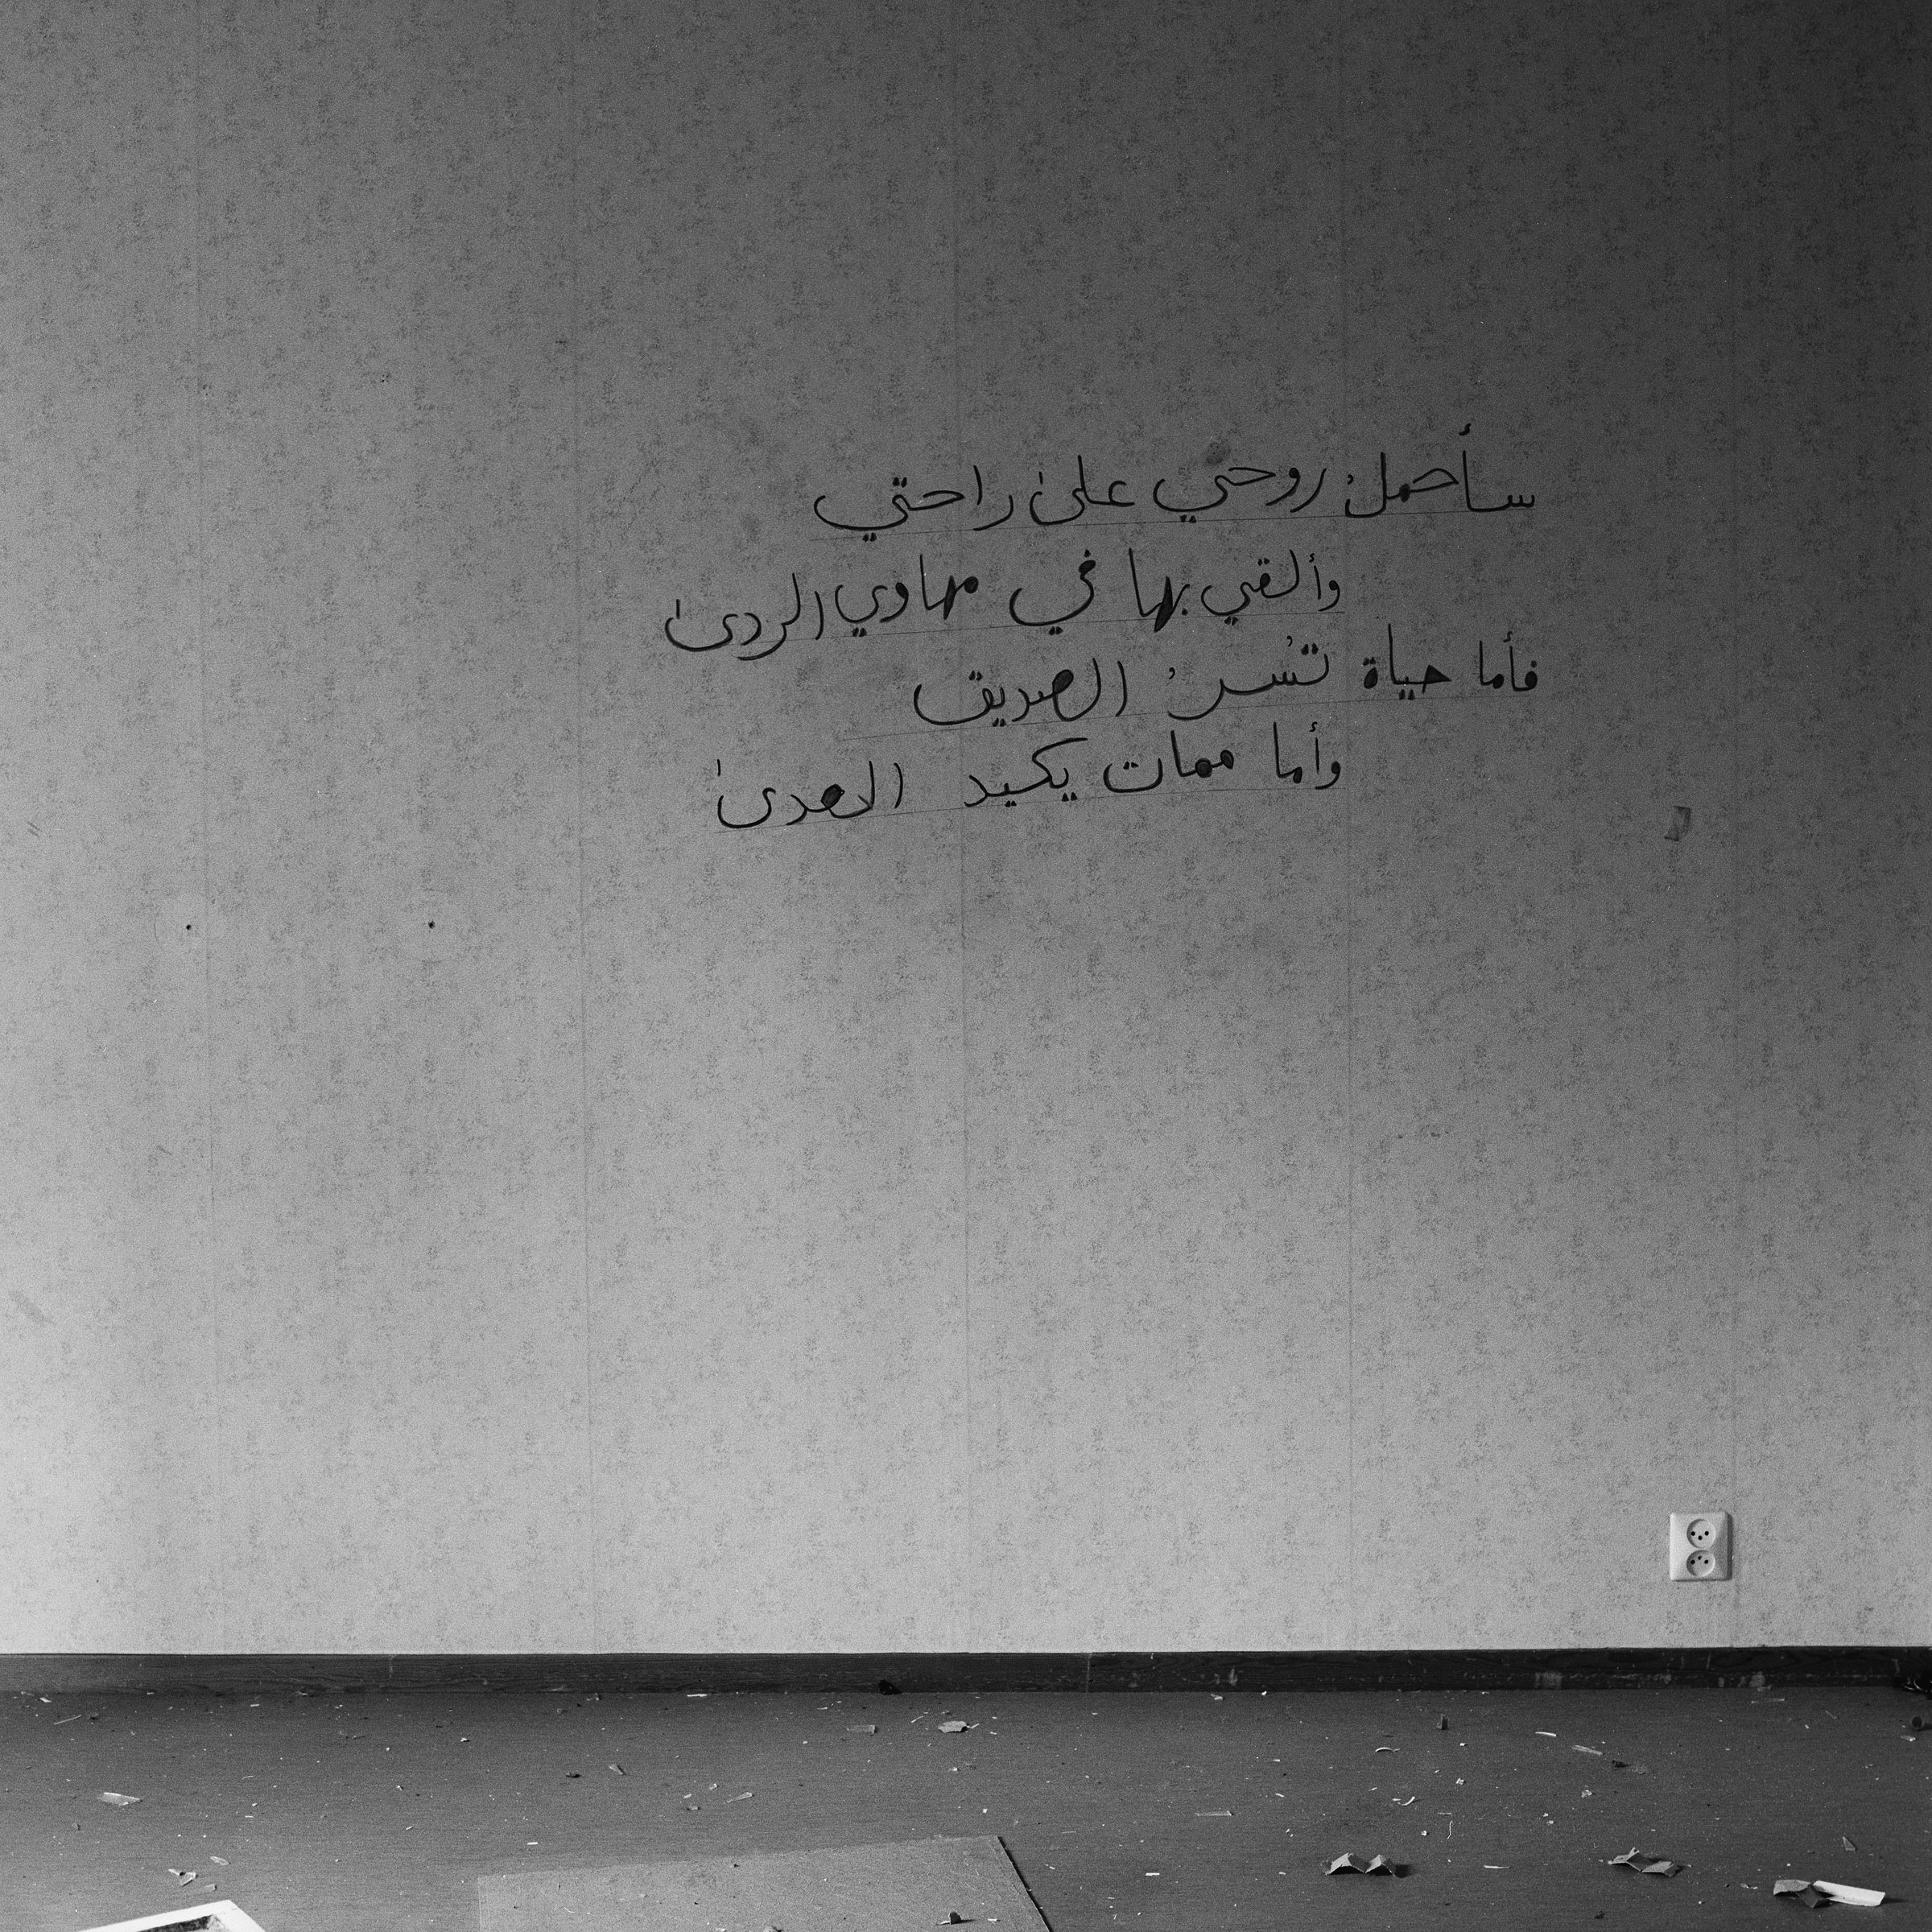 سأحملُ روحي على راحتي
وألقي بها في مهاوي الردى
فأما حياة تُسرُ الصديق
وأما ممات يكيد العدى